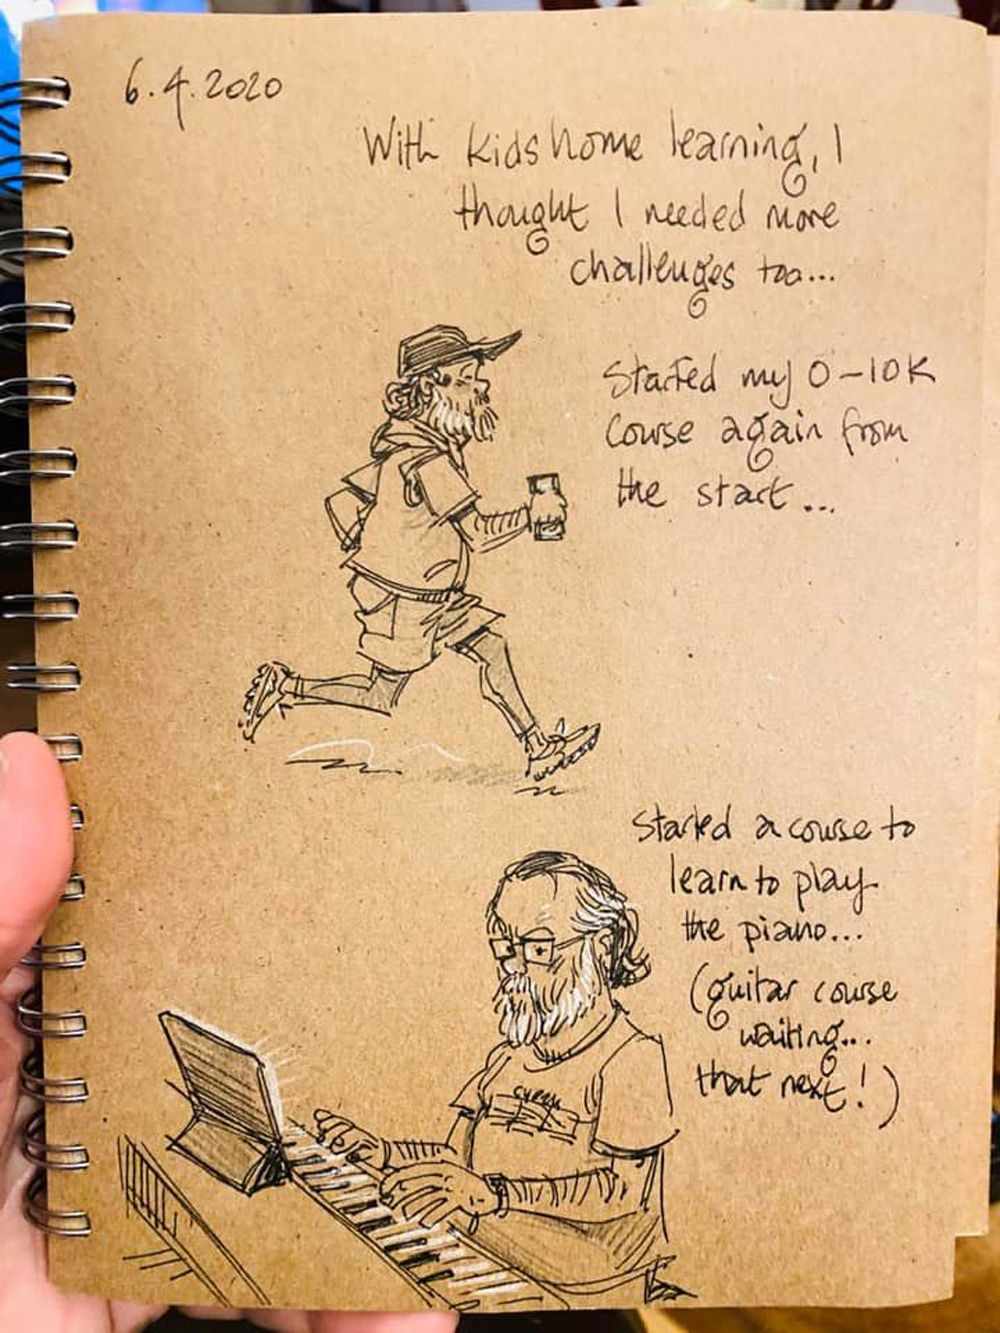 6.4.2020
With kids home learning, I
thought I needed more
challenges too...
Started my 0-10K
Course again from
the start...
Started a course to
learn to play
the piano...
(guitar course
waiting...
that next!)